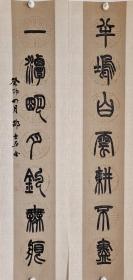 半塢白雲耕不盡
一潭明月釣無痕
癸卯四月